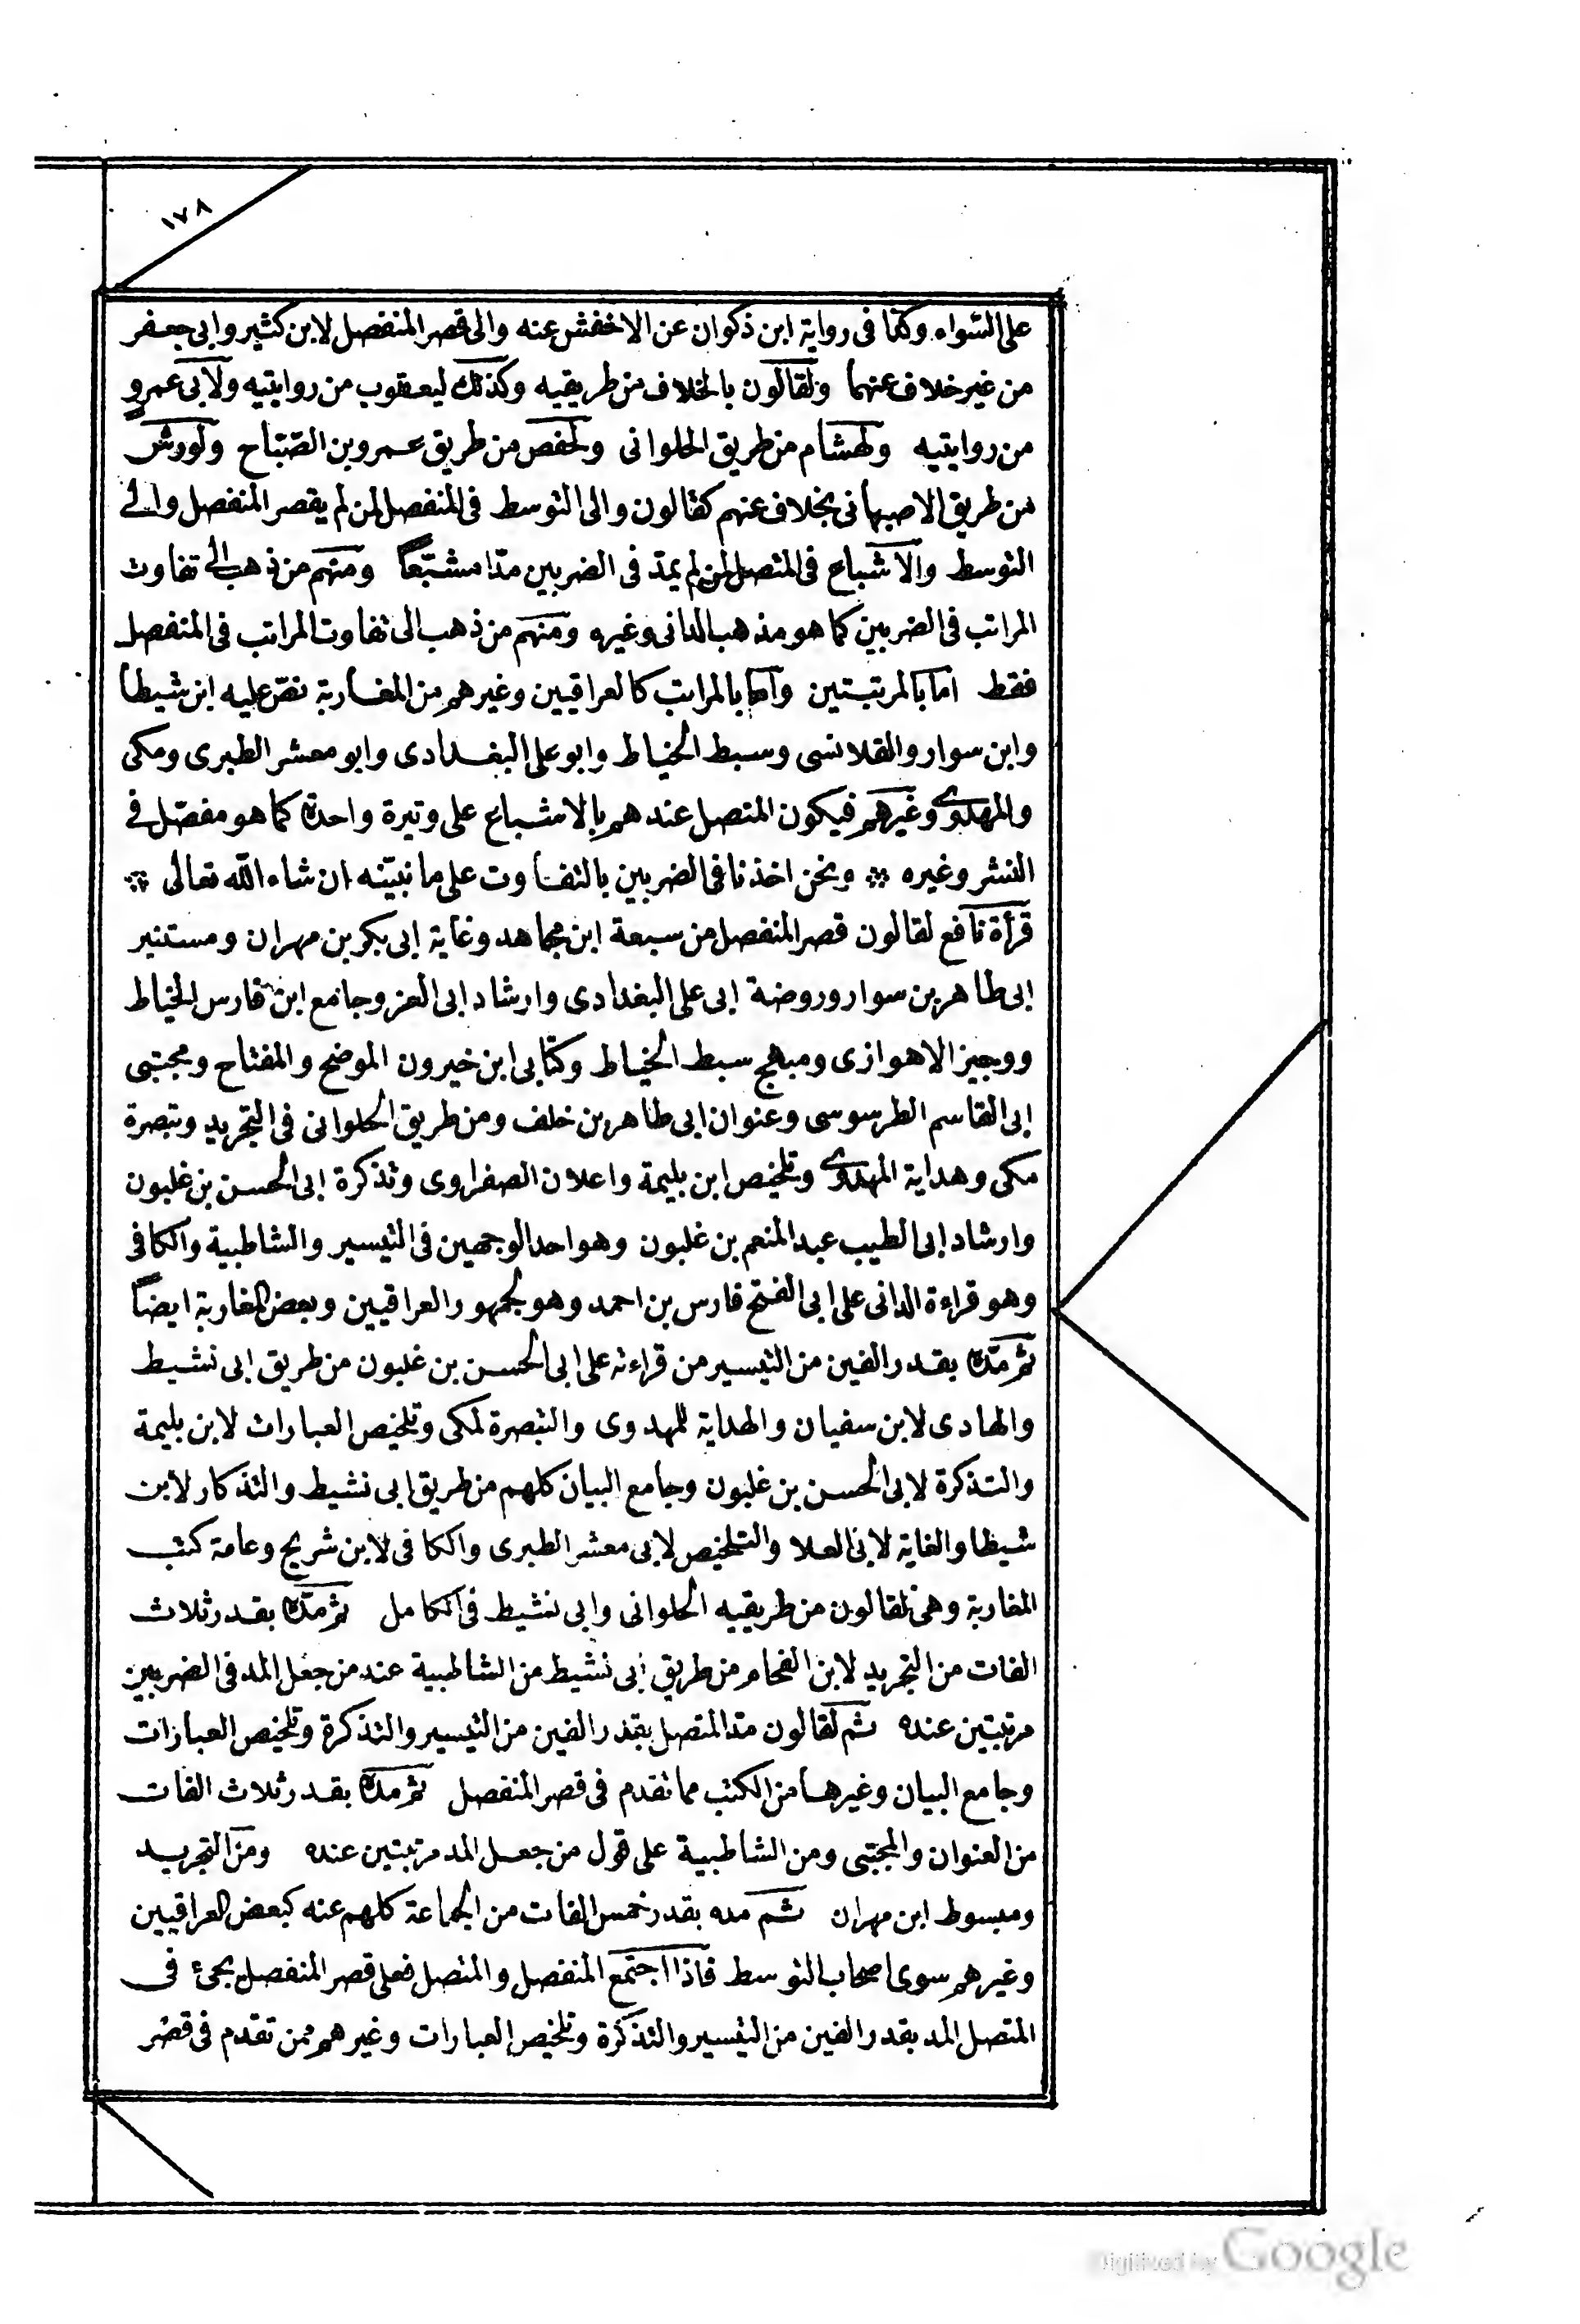 ١٧٨
على السواء وكما فى رواية ابن ذكوان عن الاخفش عنه والى قصر المنفصل لابن كثير وابى جعفر
من غير خلاف عنهما ولقالون بالخلاف من طريقيه وكذلك ليعقوب من روايتيه ولابى عمرو
من روايتيه ولهشام من طريق الحلوانى ولحفص من طريق عمرو بن الصّبّاح ولورش
من طريق الاصبهانى بخلاف عنهم كقالون والى التوسط فى المنفصل لمن لم يقصر المنفصل والى
التوسط والاشباع فى المتصل لمن لم يمدّ فى الضربين مدّا مشبّعًا ومنهم من ذهب الى تفاوت
المراتب فى الضربين كما هو مذهب الدانى وغيره ومنهم من ذهب الى تفاوت المراتب فى المنفصل
فقط اما بالمرتبتين واما بالمراتب كالعراقيين وغيرهم من المغاربة نصّ عليه ابن شيطا
وابن سوار والقلانسى وسبط الخياط وابو على البغدادى وابو معشر الطبرى ومكى
والمهدوى وغيرهم فيكون المتصل عندهم بالاشباع على وتيرة واحدة كما هو مفصّل فى
النشر وغيره ⁘ ونحن اخذنا فى الضربين بالتفاوت على ما نبيّنه ان شاء الله تعالى ⁘
قرأة نافع لقالون قصر المنفصل من سبعة ابن مجاهد وغاية ابى بكر بن مهران ومستنير
ابى طاهر بن سوار وروضة ابى على البغدادى وارشاد ابى العز وجامع ابن فارس الخياط
ووجيز الاهوازى ومبهج سبط الخياط وكتابى ابن خيرون الموضح والمفتاح ومجتبى
ابى القاسم الطرسوسى وعنوان ابى طاهر بن خلف ومن طريق الحلوانى فى التجريد وتبصرة
مكى وهداية المهدوى وتلخيص ابن بليمة واعلان الصفراوى وتذكرة ابى الحسن بن غلبون
وارشاد ابى الطيب عبد المنعم بن غلبون وهو احد الوجهين فى التيسير والشاطبية والكافى
وهو قراءة الدانى على ابى الفتح فارس بن احمد وهو لجمهور العراقيين وبعض المغاربة ايضاً
ثم مدّه بقدر الفين من التيسير من قراءته على ابى الحسن بن غلبون من طريق ابى نشيط
والهادى لابن سفيان والهداية للمهدوى والتبصرة لمكى وتلخيص العبارات لابن بليمة
والتذكرة لابى الحسن بن غلبون وجامع البيان كلهم من طريق ابى نشيط والتذكار لابن
شيطا والغاية لابى العلا والتلخيص لابى معشر الطبرى والكافى لابن شريح وعامة كتب
المغاربة وهى لقالون من طريقيه الحلوانى وابى نشيط فى الكامل ثم مدّه بقدر ثلاث
الفات من التجريد لابن الفحام من طريق ابى نشيط من الشاطبية عند من جعل المد فى الضربين
مرتبتين عنده ثم لقالون مد المتصل بقدر الفين من التيسير والتذكرة وتلخيص العبارات
وجامع البيان وغيرها من الكتب مما تقدم فى قصر المنفصل ثم مده بقدر ثلاث الفات
من العنوان والمجتبى ومن الشاطبية على قول من جعل المد مرتبتين عنده ومن التجريد
ومبسوط ابن مهران ثم مده بقدر خمس الفات من الجماعة كلهم عنه كبعض العراقيين
وغيرهم سوى اصحاب التوسط فاذا اجتمع المنفصل والمتصل فعلى قصر المنفصل يجئ فى
المتصل المد بقدر الفين من التيسير والتذكرة وتلخيص العبارات وغيرهم ممن تقدم فى قصر
Digitized by Google